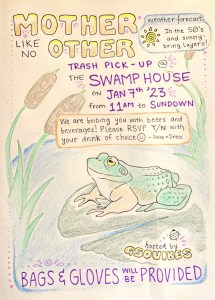 MOTHER
LIKE NO OTHER
weather forecast:
In the 50's
and sunny,
bring layers!
TRASH PICK-UP @
THE SWAMP HOUSE
ON JAN 7TH '23
from 11AM to SUNDOWN
We are bribing you with beers and
beverages! Please RSVP Y/N with
your drink of choice
hosted by
BAGS & GLOVES WILL BE PROVIDED